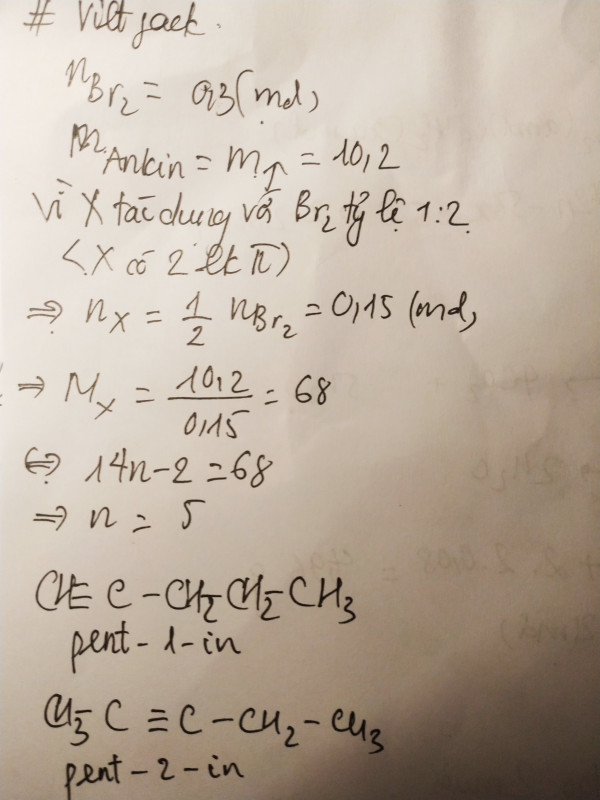 # Viltjack.
nBr2 = 0,3 (mol)
mAnkin = m↑ = 10,2
Vì X tác dụng với Br2 tỷ lệ 1:2
(X có 2 lk π)
⇒ nX = 1/2 nBr2 = 0,15 (mol)
⇒ MX = 10,2/0,15 = 68
⇔ 14n-2 = 68
⇒ n = 5
CH≡C-CH2-CH2-CH3
pent-1-in
CH3-C≡C-CH2-CH3
pent-2-in